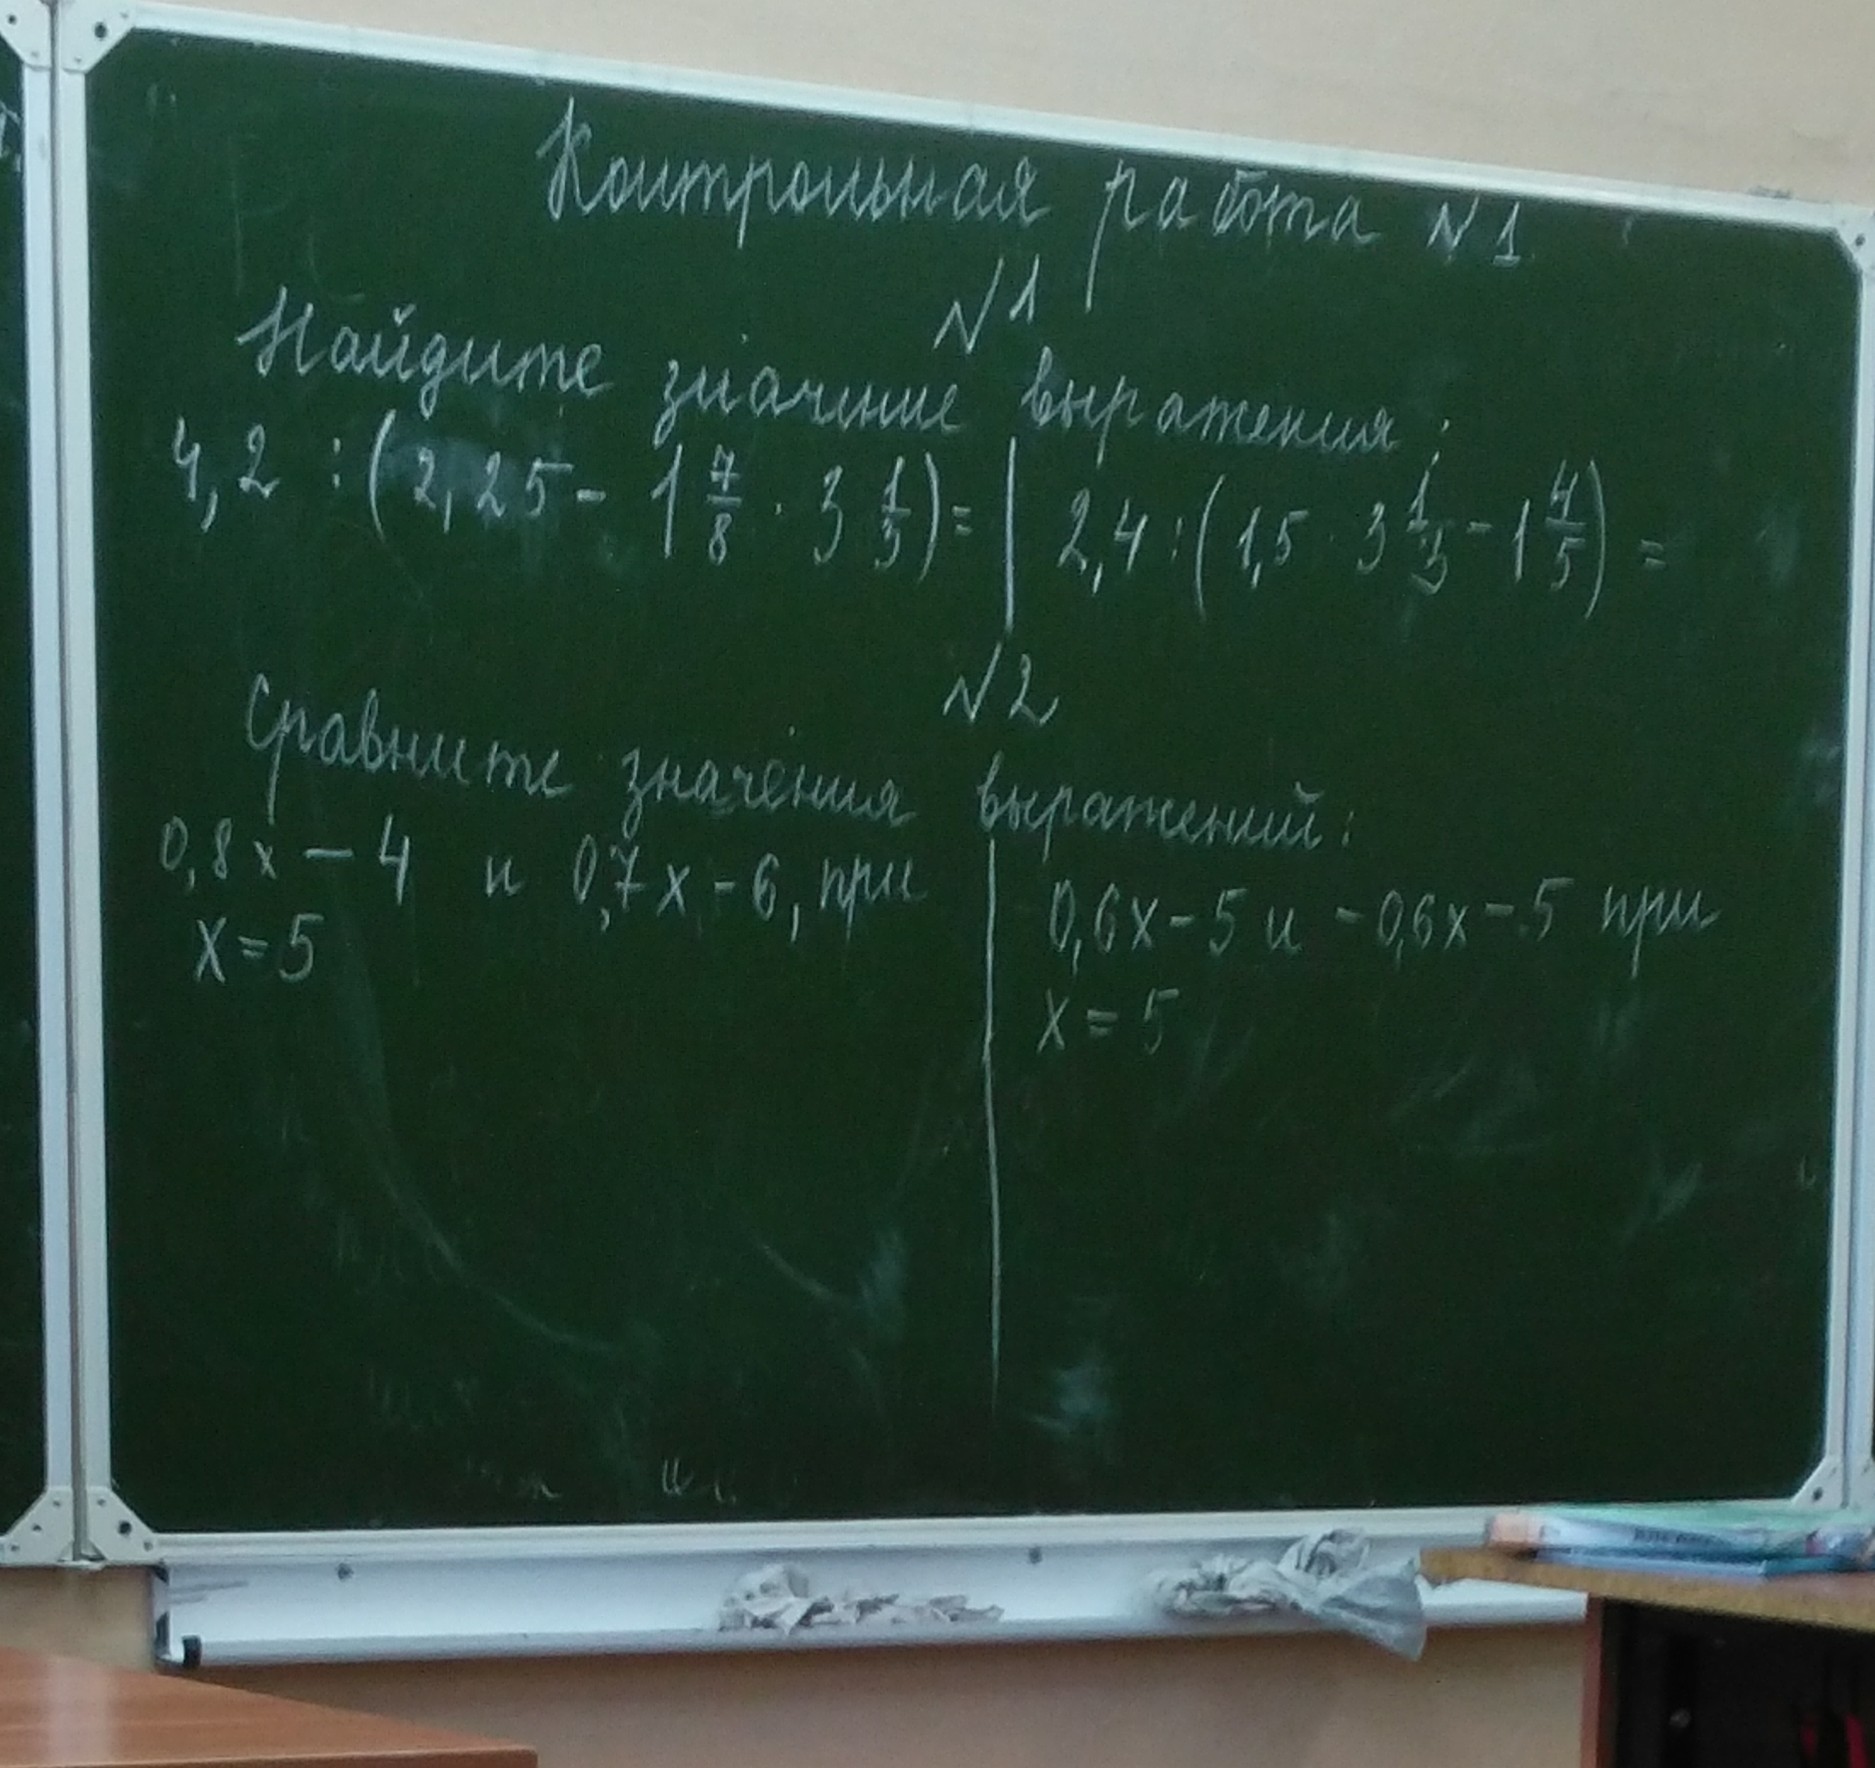 Контрольная работа №1
№1
Найдите значение выражения:
4,2 : (2,25 - 1 7/8 · 3 1/3) = | 2,4 : (1,5 · 3 1/3 - 1 4/5) =
№2
Сравните значения выражений:
0,8x - 4 и 0,7x - 6, при
x = 5
0,6x - 5 и -0,6x - 5 при
x = 5